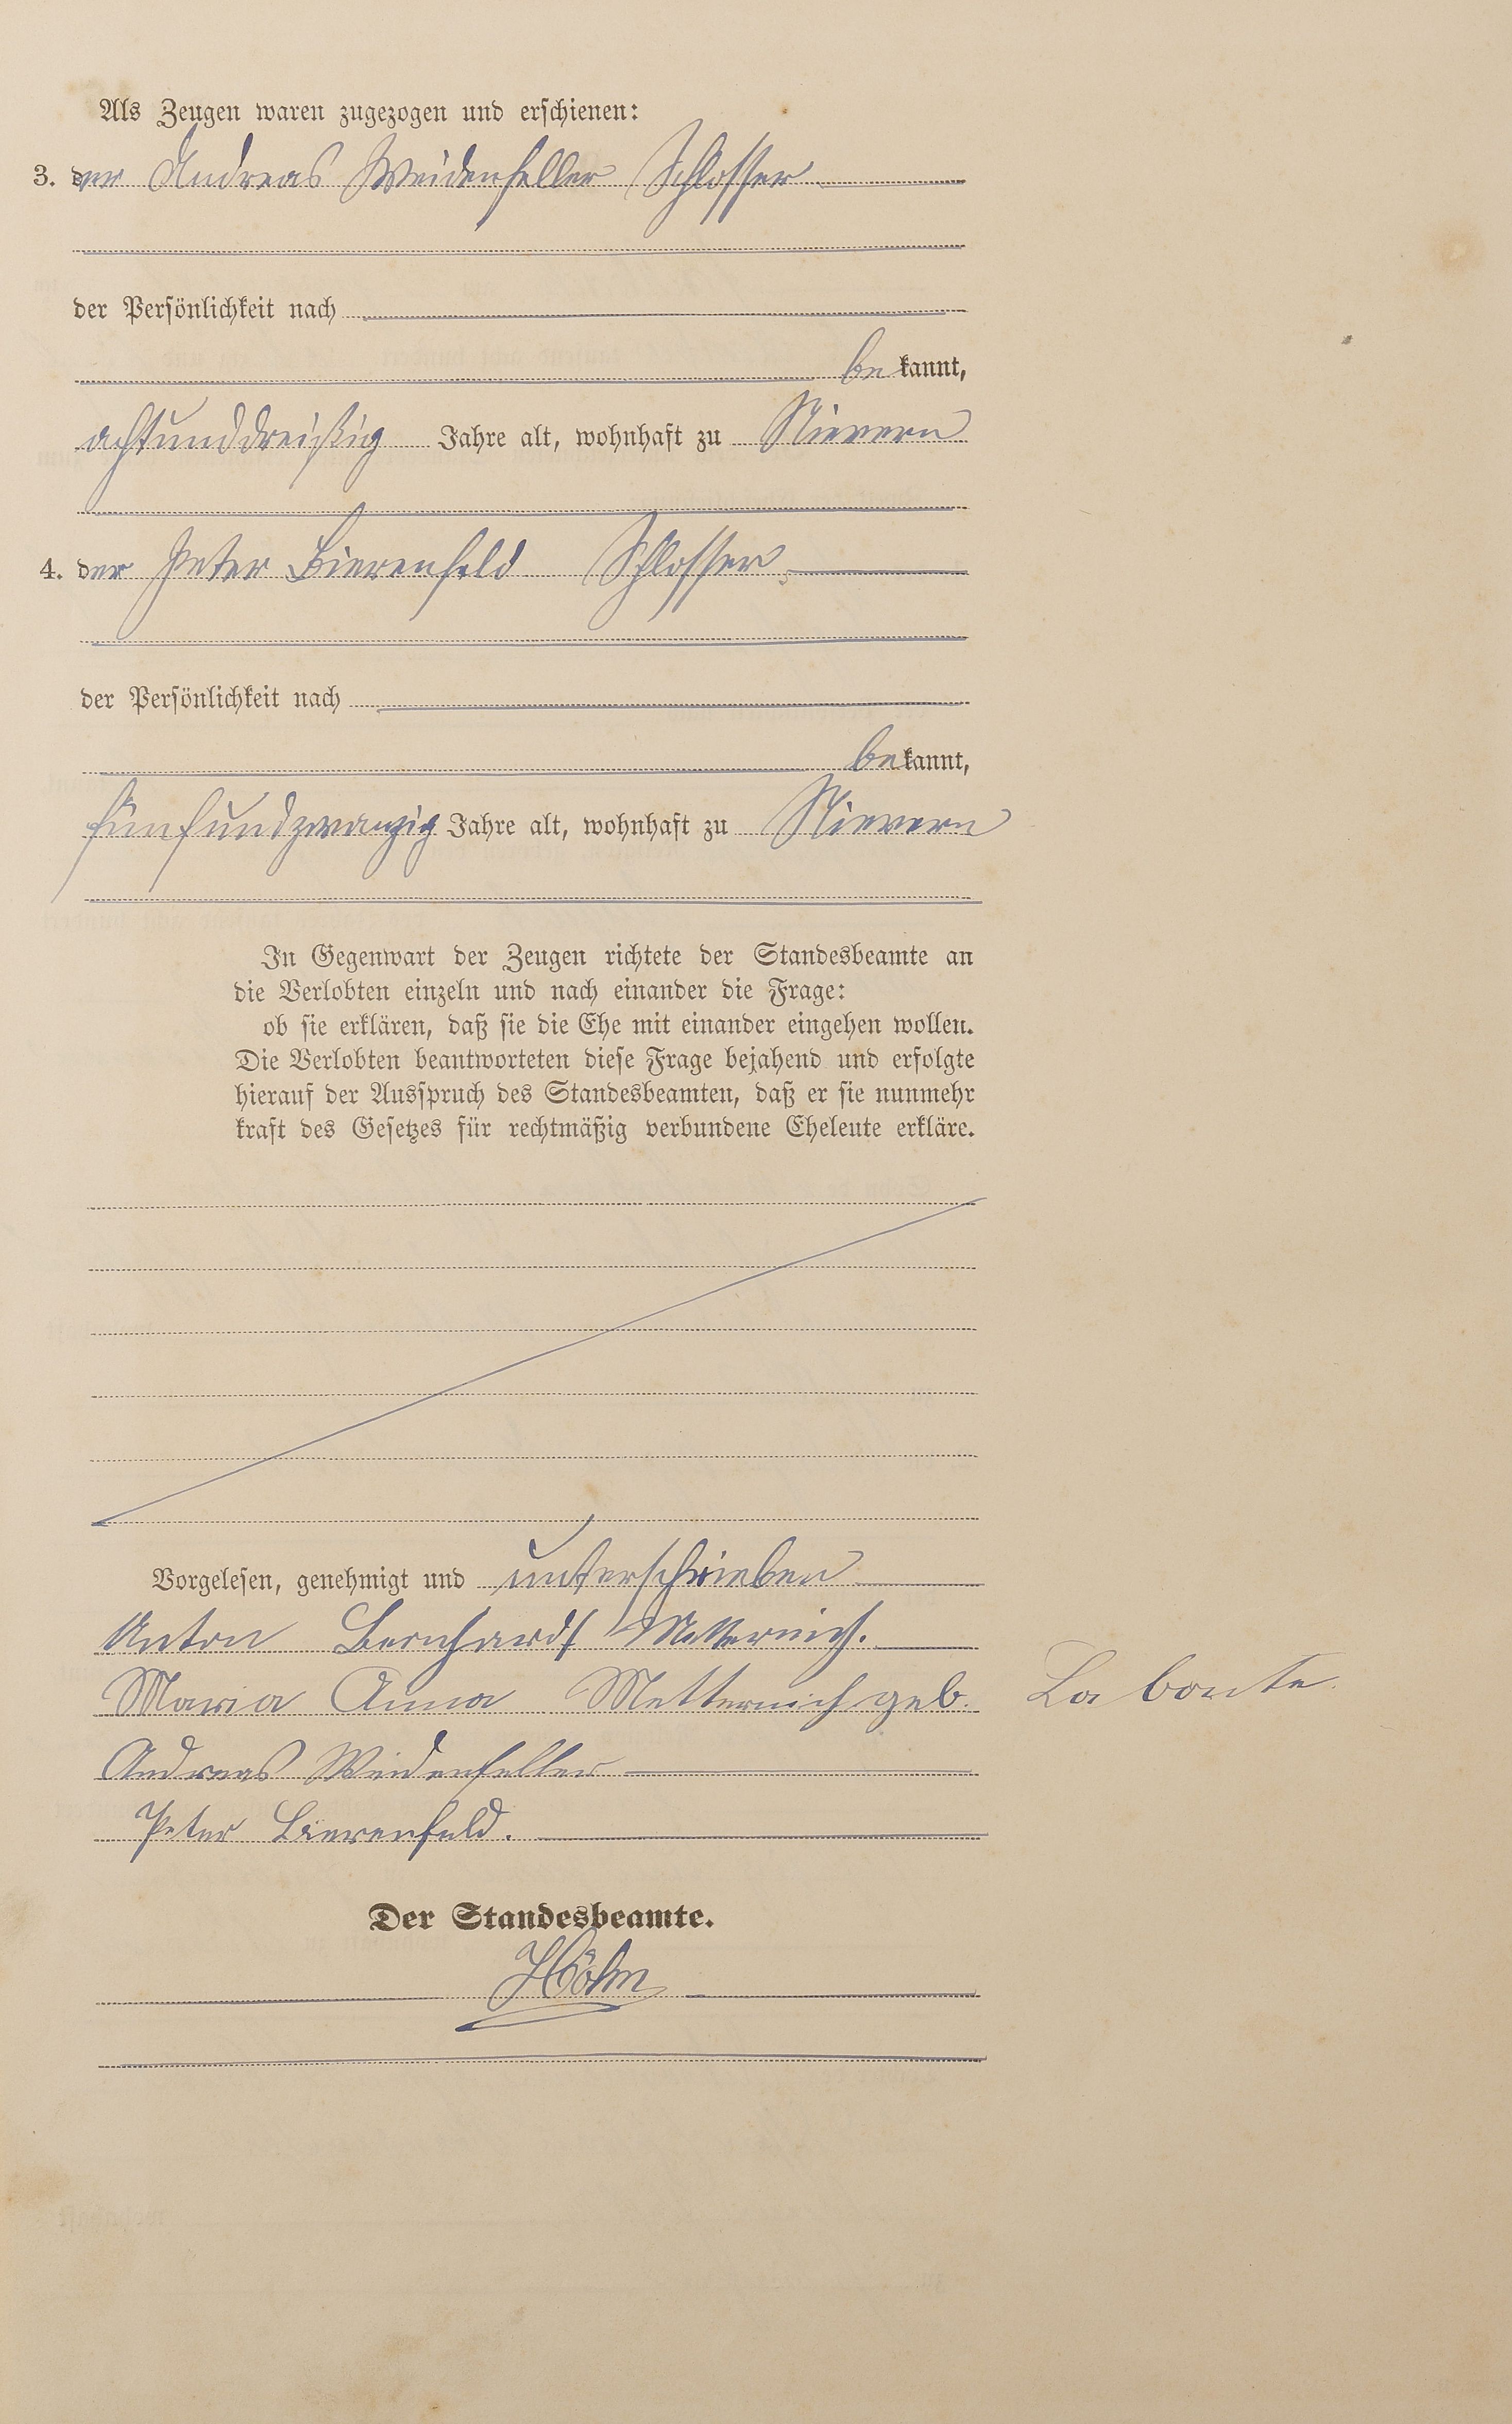 Als Zeugen waren zugezogen und erschienen:
3. der Andreas Weidenfeller Schlosser
der Persönlichkeit nach
bekannt,
achtunddreißig Jahre alt, wohnhaft zu Nievern
4. der Peter Bierenfeld Schlosser
der Persönlichkeit nach
bekannt,
fünfundzwanzig Jahre alt, wohnhaft zu Nievern
In Gegenwart der Zeugen richtete der Standesbeamte an
die Verlobten einzeln und nach einander die Frage:
ob sie erklären, daß sie die Ehe mit einander eingehen wollen.
Die Verlobten beantworteten diese Frage bejahend und erfolgte
hierauf der Ausspruch des Standesbeamten, daß er sie nunmehr
kraft des Gesetzes für rechtmäßig verbundene Eheleute erkläre.
Vorgelesen, genehmigt und unterschrieben
Anton Bernhardt Metternich.
Maria Anna Metternich geb. La bonte.
Andreas Weidenfeller
Peter Bierenfeld.
Der Standesbeamte.